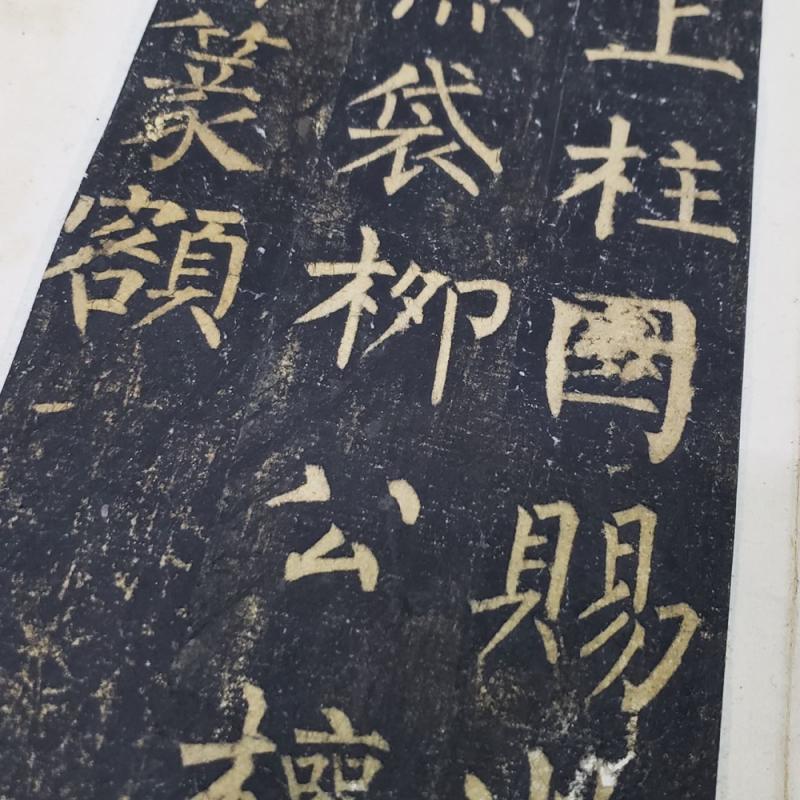 上柱國賜
袋柳公權
篆額